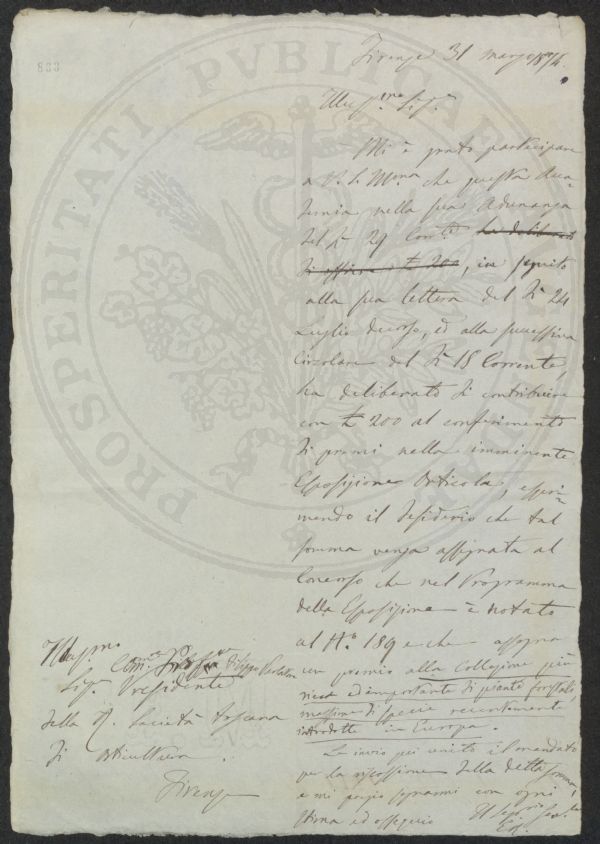 833
PROSPERITATI PVBLICAE
Firenze 31 marzo 1874.
Illuss.mo Sig.e
Mi è grato partecipare
a V. S. Ill.ma che questa Acca-
demia nella sua Adunanza
del dì 29 Corr.e ha deliberato
di offrire £ 200, in seguito
alla sua lettera del dì 24
Luglio decorso, ed alla successiva
Circolare del dì 18 Corrente,
ha deliberato di contribuire
con £ 200 al conferimento
di premi nella imminente
Esposizione Orticola, espri-
mendo il desiderio che tal
somma venga assegnata al
Concorso che nel Programma
della Esposizione è notato
al N.o 189 e che assegna
un premio alla Collezione più
ricca ed importante di piante forestali
massime di specie recentemente
introdotte in Europa.
Le invio qui unito il mandato
per la riscossione della detta somma,
e mi pregio segnarmi con ogni
stima ed ossequio
Ill.mo
Sig. Presidente
della R. Società toscana
di orticultura.
Firenze